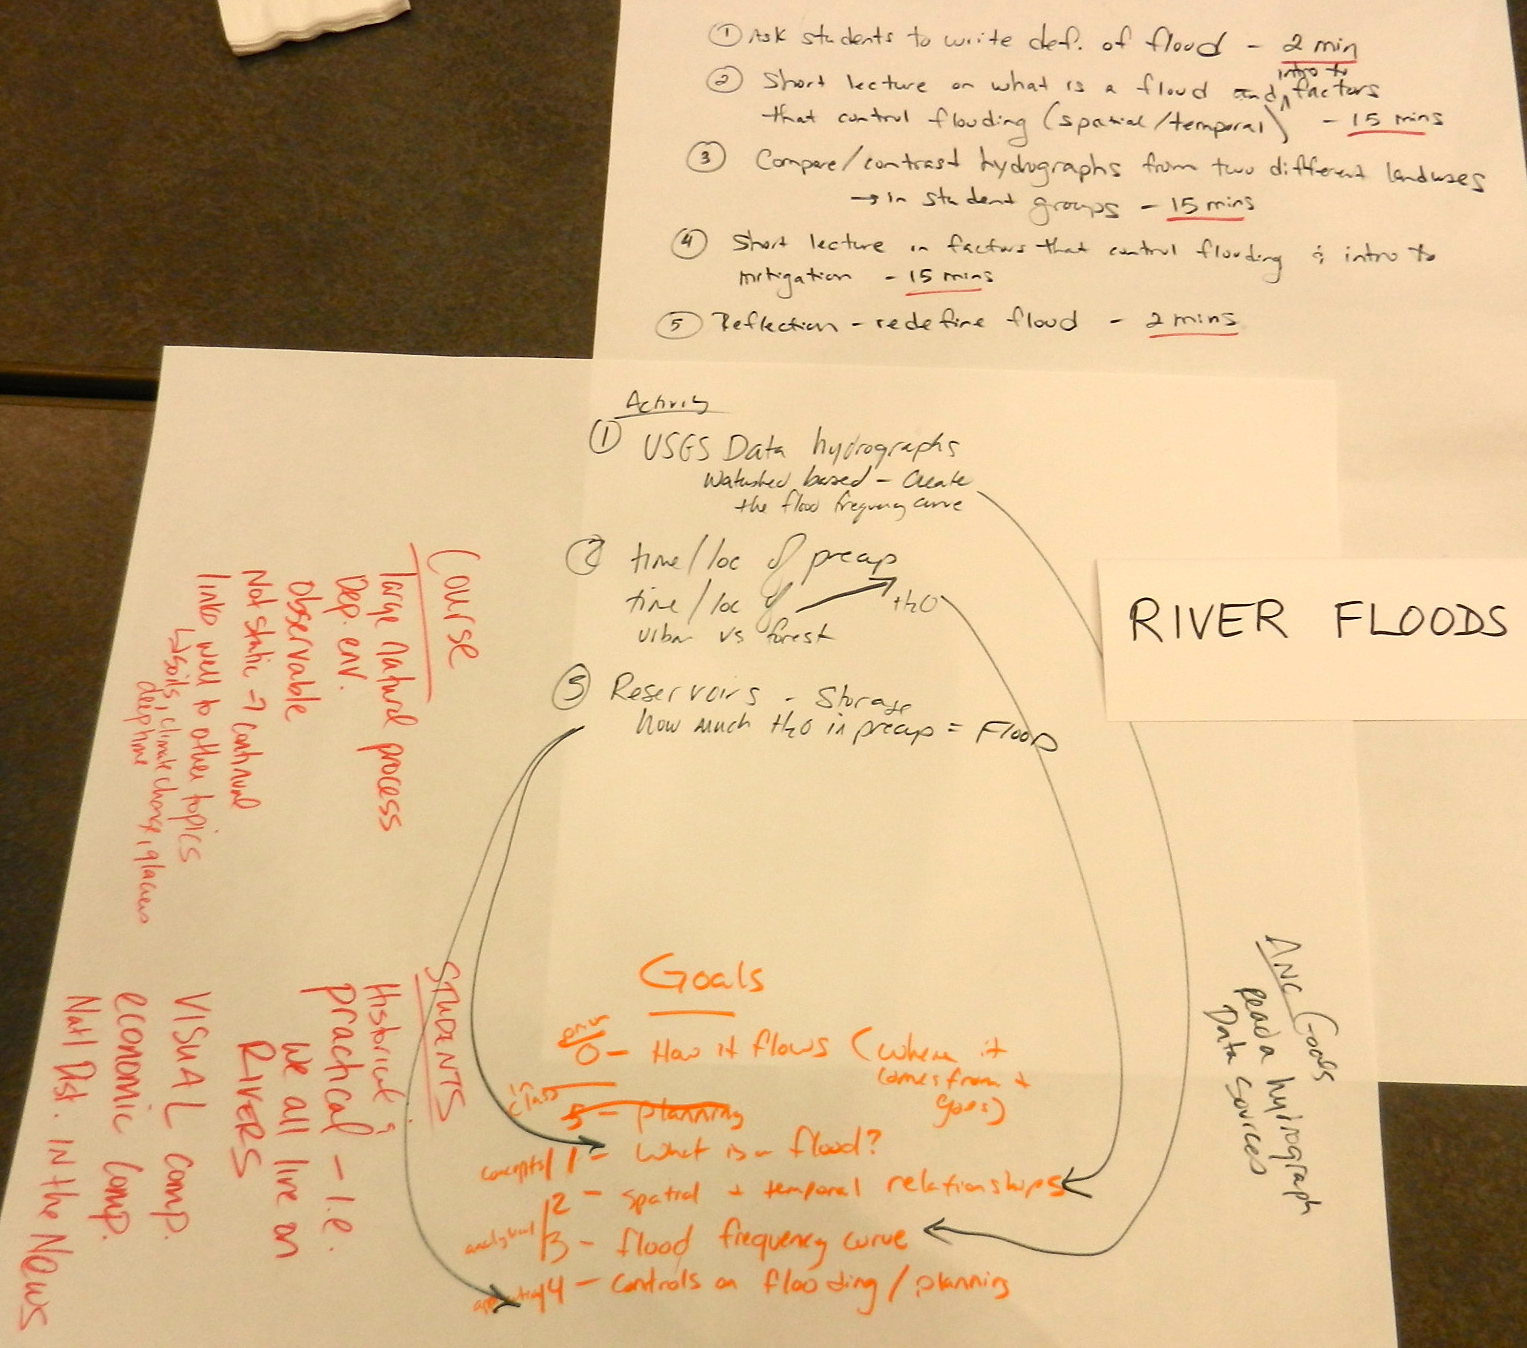 ① Ask students to write def. of flood - 2 min
② Short lecture on what is a flood and intro to factors
that control flooding (spatial/temporal) - 15 mins
③ Compare/contrast hydrographs from two different landuses
→ in student groups - 15 mins
④ Short lecture in factors that control flooding & intro to
mitigation - 15 mins
⑤ Reflection - redefine flood - 2 mins
Activity
① USGS Data hydrographs
Watershed based - Create
the flood frequency curve
② time/loc of precip
time/loc of H2O
urban vs forest
③ Reservoirs - Storage
how much H2O in precip = Flood
RIVER FLOODS
Course
large natural process
Dep. env.
Observable
Not static → continual
links well to other topics
↳ soils, climate change, glaciers
deep time
STUDENTS
Historical &
practical - i.e.
we all live on
RIVERS
VISUAL comp.
economic comp.
Nat'l Dist. IN the News
Goals
prior
0 - How it flows (where it
comes from +
goes)
in class
5 - planning
concepts/ 1 - What is a flood?
2 - spatial + temporal relationships
analytical/ 3 - flood frequency curve
4 - controls on flooding/planning
ANC Goals
read a hydrograph
Data sources